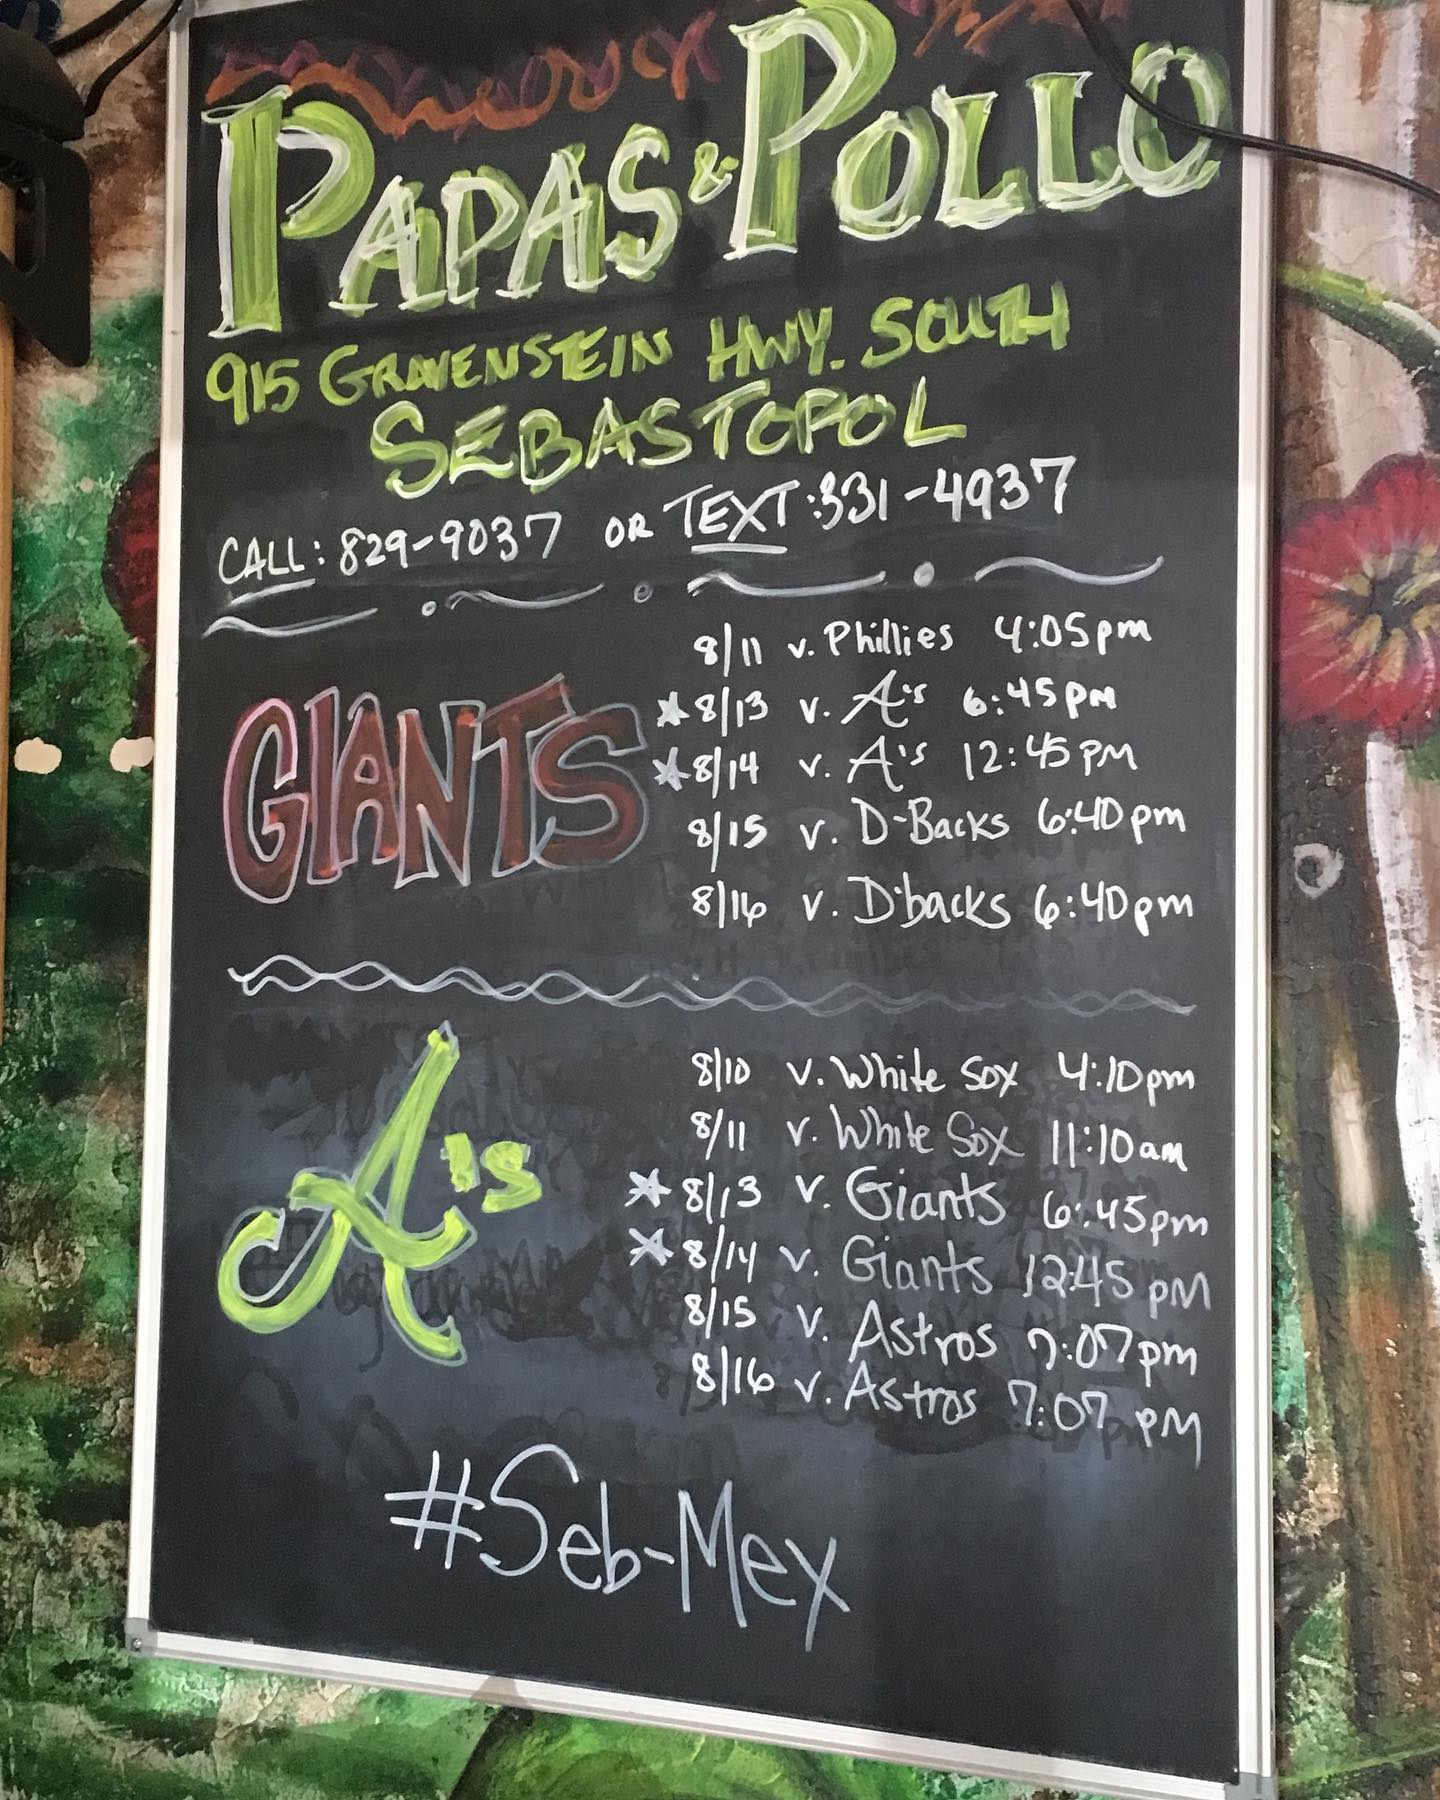 PAPAS & POLLO
915 GRAVENSTEIN HWY. SOUTH
SEBASTOPOL
CALL: 829-9037 OR TEXT: 331-4937
GIANTS
8/11 v. Phillies 4:05pm
★ 8/13 v. A's 6:45PM
★ 8/14 v. A's 12:45PM
8/15 v. D-Backs 6:40pm
8/16 v. D'backs 6:40pm
A's
8/10 v. White Sox 4:10pm
8/11 v. White Sox 11:10am
★ 8/13 v. Giants 6:45pm
★ 8/14 v. Giants 12:45 PM
8/15 v. Astros 7:07pm
8/16 v. Astros 7:07 PM
#Seb-Mex